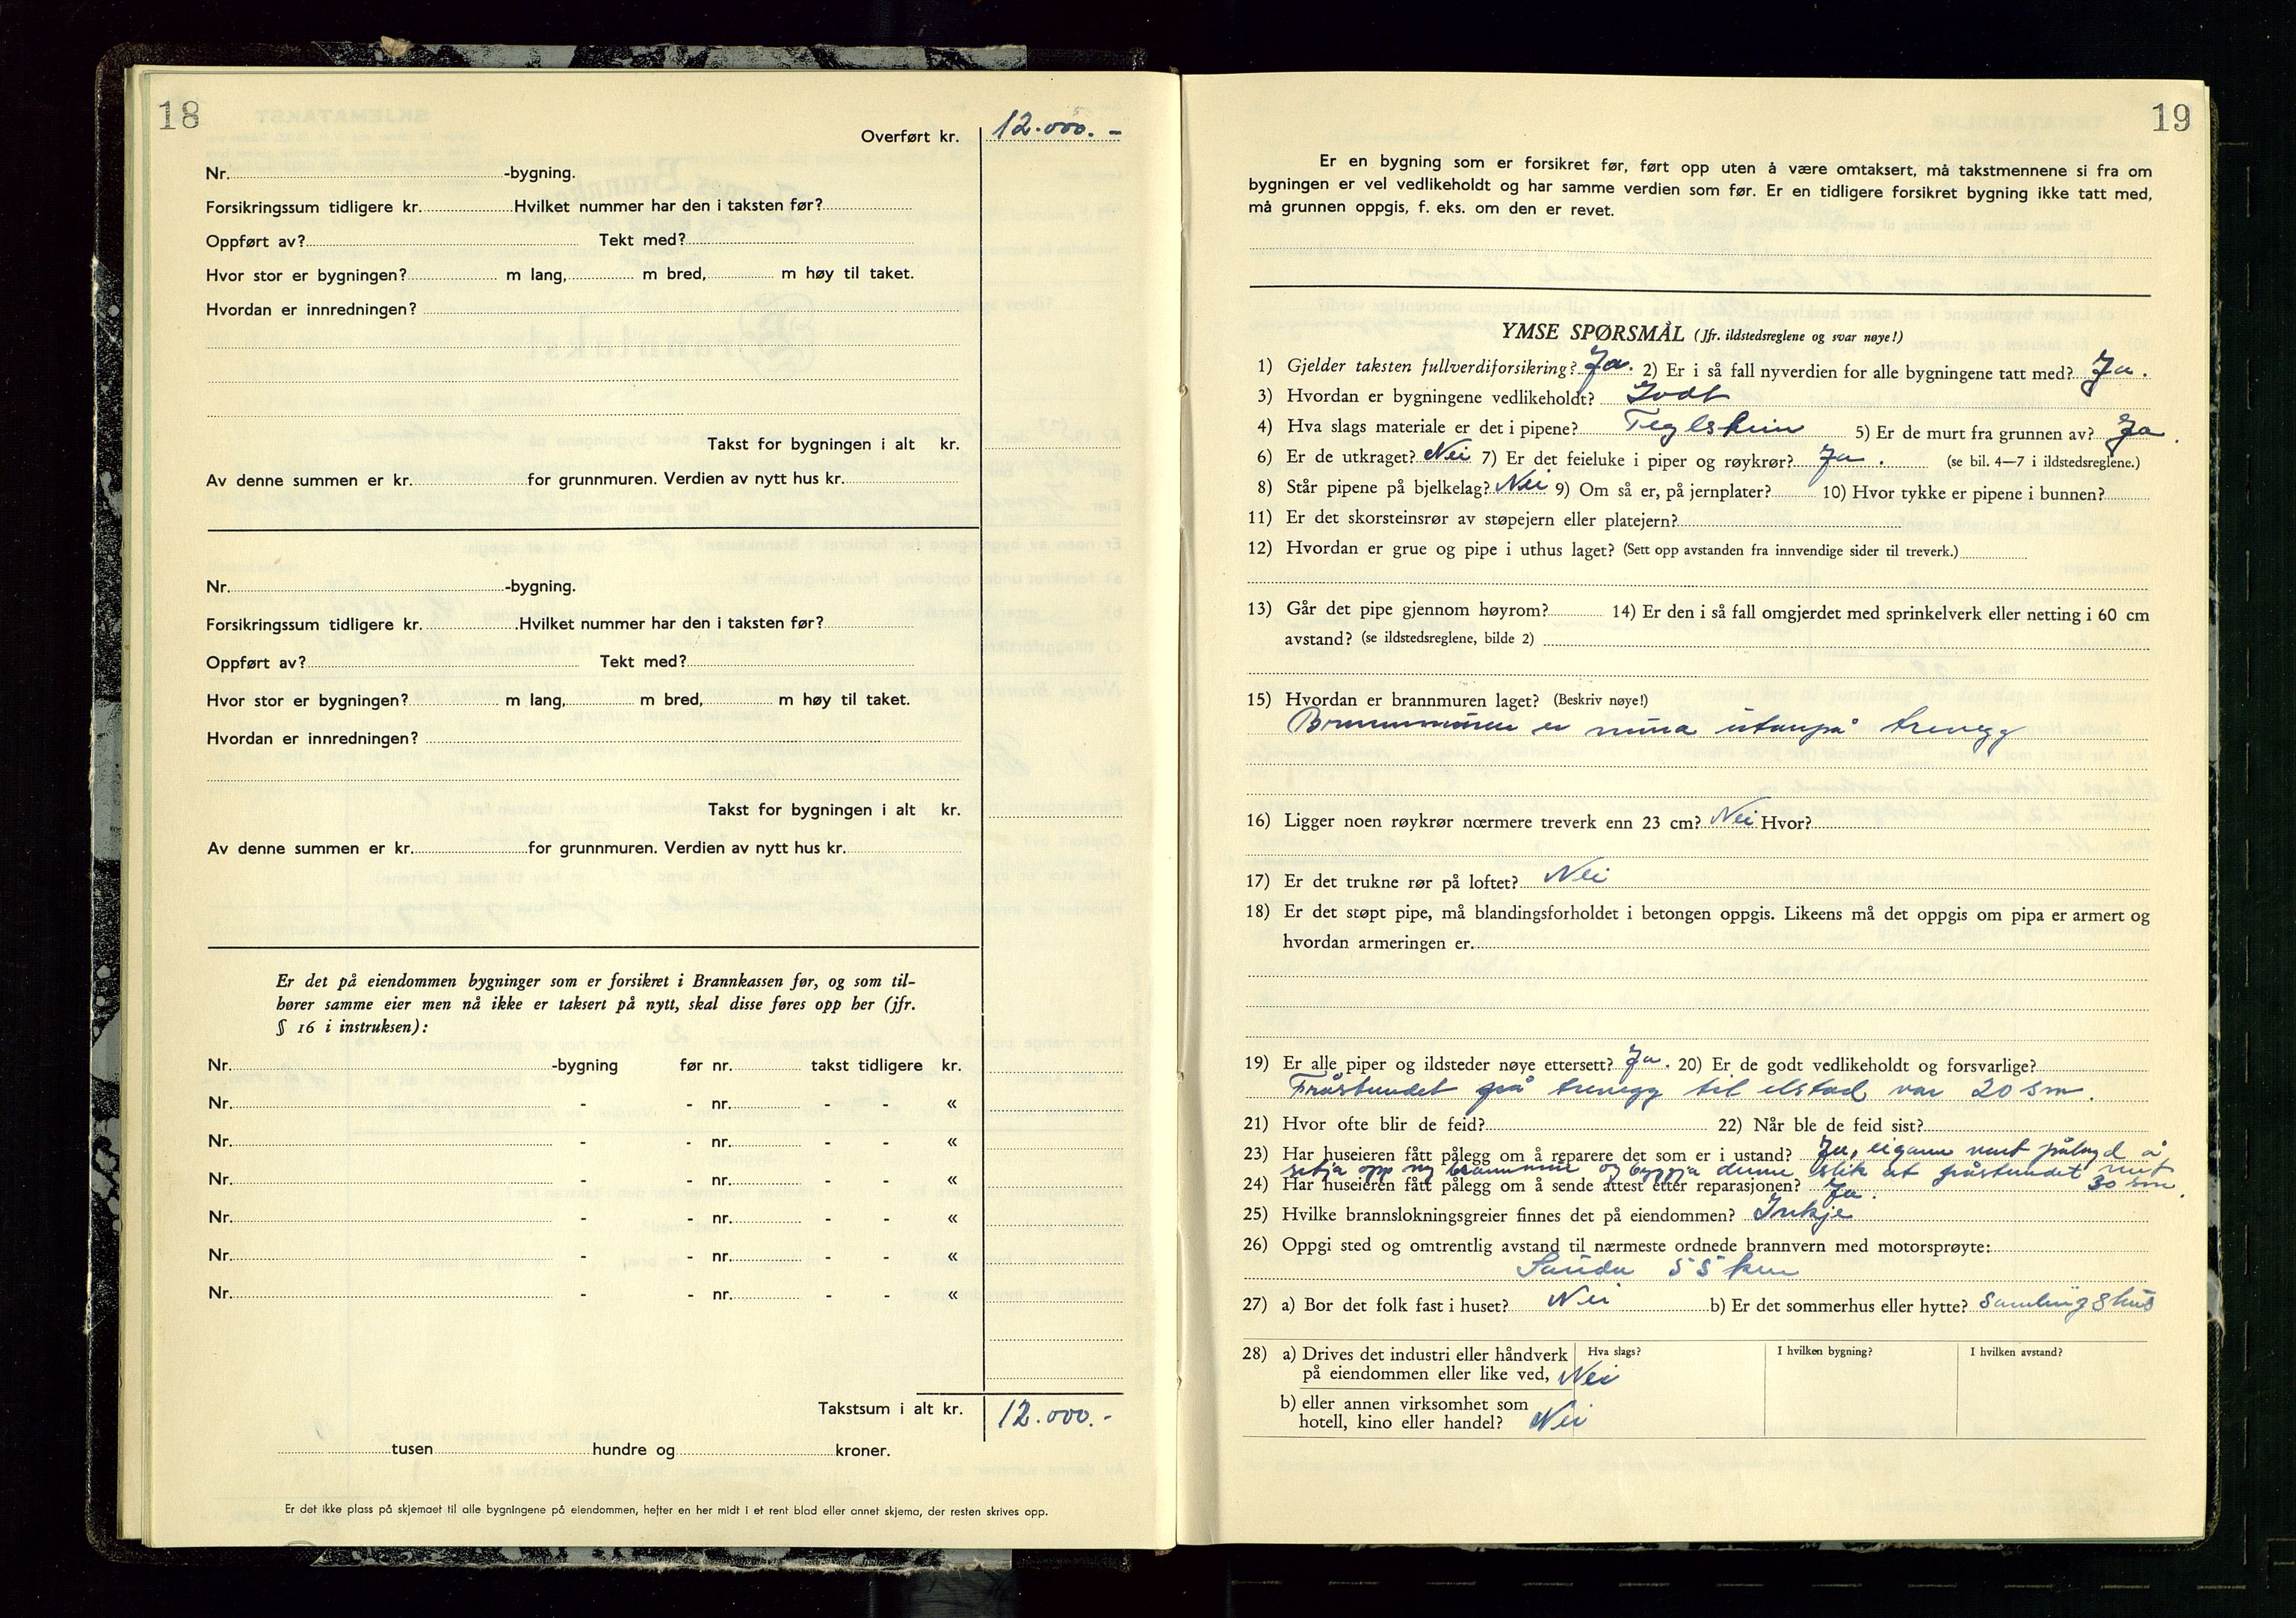 18
Overført kr. 12.000.-
Nr. -bygning.
Forsikringssum tidligere kr. Hvilket nummer har den i taksten før?
Oppført av? Tekt med?
Hvor stor er bygningen? m lang, m bred, m høy til taket.
Hvordan er innredningen?
Takst for bygningen i alt kr.
Av denne summen er kr. for grunnmuren. Verdien av nytt hus kr.
Nr. -bygning.
Forsikringssum tidligere kr. Hvilket nummer har den i taksten før?
Oppført av? Tekt med?
Hvor stor er bygningen? m lang, m bred, m høy til taket.
Hvordan er innredningen?
Takst for bygningen i alt kr.
Av denne summen er kr. for grunnmuren. Verdien av nytt hus kr.
Er det på eiendommen bygninger som er forsikret i Brannkassen før, og som til-
hører samme eier men nå ikke er taksert på nytt, skal disse føres opp her (jfr.
§ 16 i instruksen):
Nr. -bygning før nr. takst tidligere kr.
Nr. - - nr. - - «
Nr. - - nr. - - «
Nr. - - nr. - - «
Nr. - - nr. - - «
Nr. - - nr. - - «
Nr. - - nr. - - «
Takstsum i alt kr. 12.000.-
tusen hundre og kroner.
Er det ikke plass på skjemaet til alle bygningene på eiendommen, hefter en her midt i et rent blad eller annet skjema, der resten skrives opp.
19
Er en bygning som er forsikret før, ført opp uten å være omtaksert, må takstmennene si fra om
bygningen er vel vedlikeholdt og har samme verdien som før. Er en tidligere forsikret bygning ikke tatt med,
må grunnen oppgis, f. eks. om den er revet.
YMSE SPØRSMÅL (Jfr. ildstedsreglene og svar nøye!)
1) Gjelder taksten fullverdiforsikring? Ja. 2) Er i så fall nyverdien for alle bygningene tatt med? Ja.
3) Hvordan er bygningene vedlikeholdt? Godt
4) Hva slags materiale er det i pipene? Teglstein 5) Er de murt fra grunnen av? Ja.
6) Er de utkraget? Nei 7) Er det feieluke i piper og røykrør? Ja. (se bil. 4—7 i ildstedsreglene.)
8) Står pipene på bjelkelag? Nei 9) Om så er, på jernplater? 10) Hvor tykke er pipene i bunnen?
11) Er det skorsteinsrør av støpejern eller platejern?
12) Hvordan er grue og pipe i uthus laget? (Sett opp avstanden fra innvendige sider til treverk.)
13) Går det pipe gjennom høyrom? 14) Er den i så fall omgjerdet med sprinkelverk eller netting i 60 cm
avstand? (se ildstedsreglene, bilde 2)
15) Hvordan er brannmuren laget? (Beskriv nøye!)
Brannmuren er mura utanpå trevegg
16) Ligger noen røykrør nærmere treverk enn 23 cm? Nei Hvor?
17) Er det trukne rør på loftet? Nei
18) Er det støpt pipe, må blandingsforholdet i betongen oppgis. Likeens må det oppgis om pipa er armert og
hvordan armeringen er.
19) Er alle piper og ildsteder nøye ettersett? Ja. 20) Er de godt vedlikeholdt og forsvarlige?
Fråstundet på trevegg til elstad var 20 sm.
21) Hvor ofte blir de feid? 22) Når ble de feid sist?
23) Har huseieren fått pålegg om å reparere det som er i ustand? Ja, eigaren vart pålagd å
setja opp ny brannmur og byggja denne slik at fråstundet vert
24) Har huseieren fått pålegg om å sende attest etter reparasjonen? Ja. 30 sm.
25) Hvilke brannslokningsgreier finnes det på eiendommen? Inkje
26) Oppgi sted og omtrentlig avstand til nærmeste ordnede brannvern med motorsprøyte:
Sauda 55 km
27) a) Bor det folk fast i huset? Nei b) Er det sommerhus eller hytte? Samlingshus
28) a) Drives det industri eller håndverk Hva slags? I hvilken bygning? I hvilken avstand?
på eiendommen eller like ved, Nei
b) eller annen virksomhet som
hotell, kino eller handel? Nei